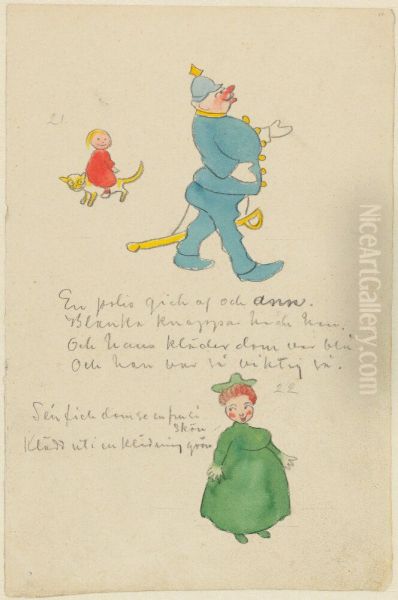 21
En polis gick af och ann.
Blanka knappar hade han.
Och hans kläder dom var blå.
Och han var så viktig så.
22
Sen fick dom se en fru i
skön
Klädd uti en klädning grön
NiceArtGallery.com